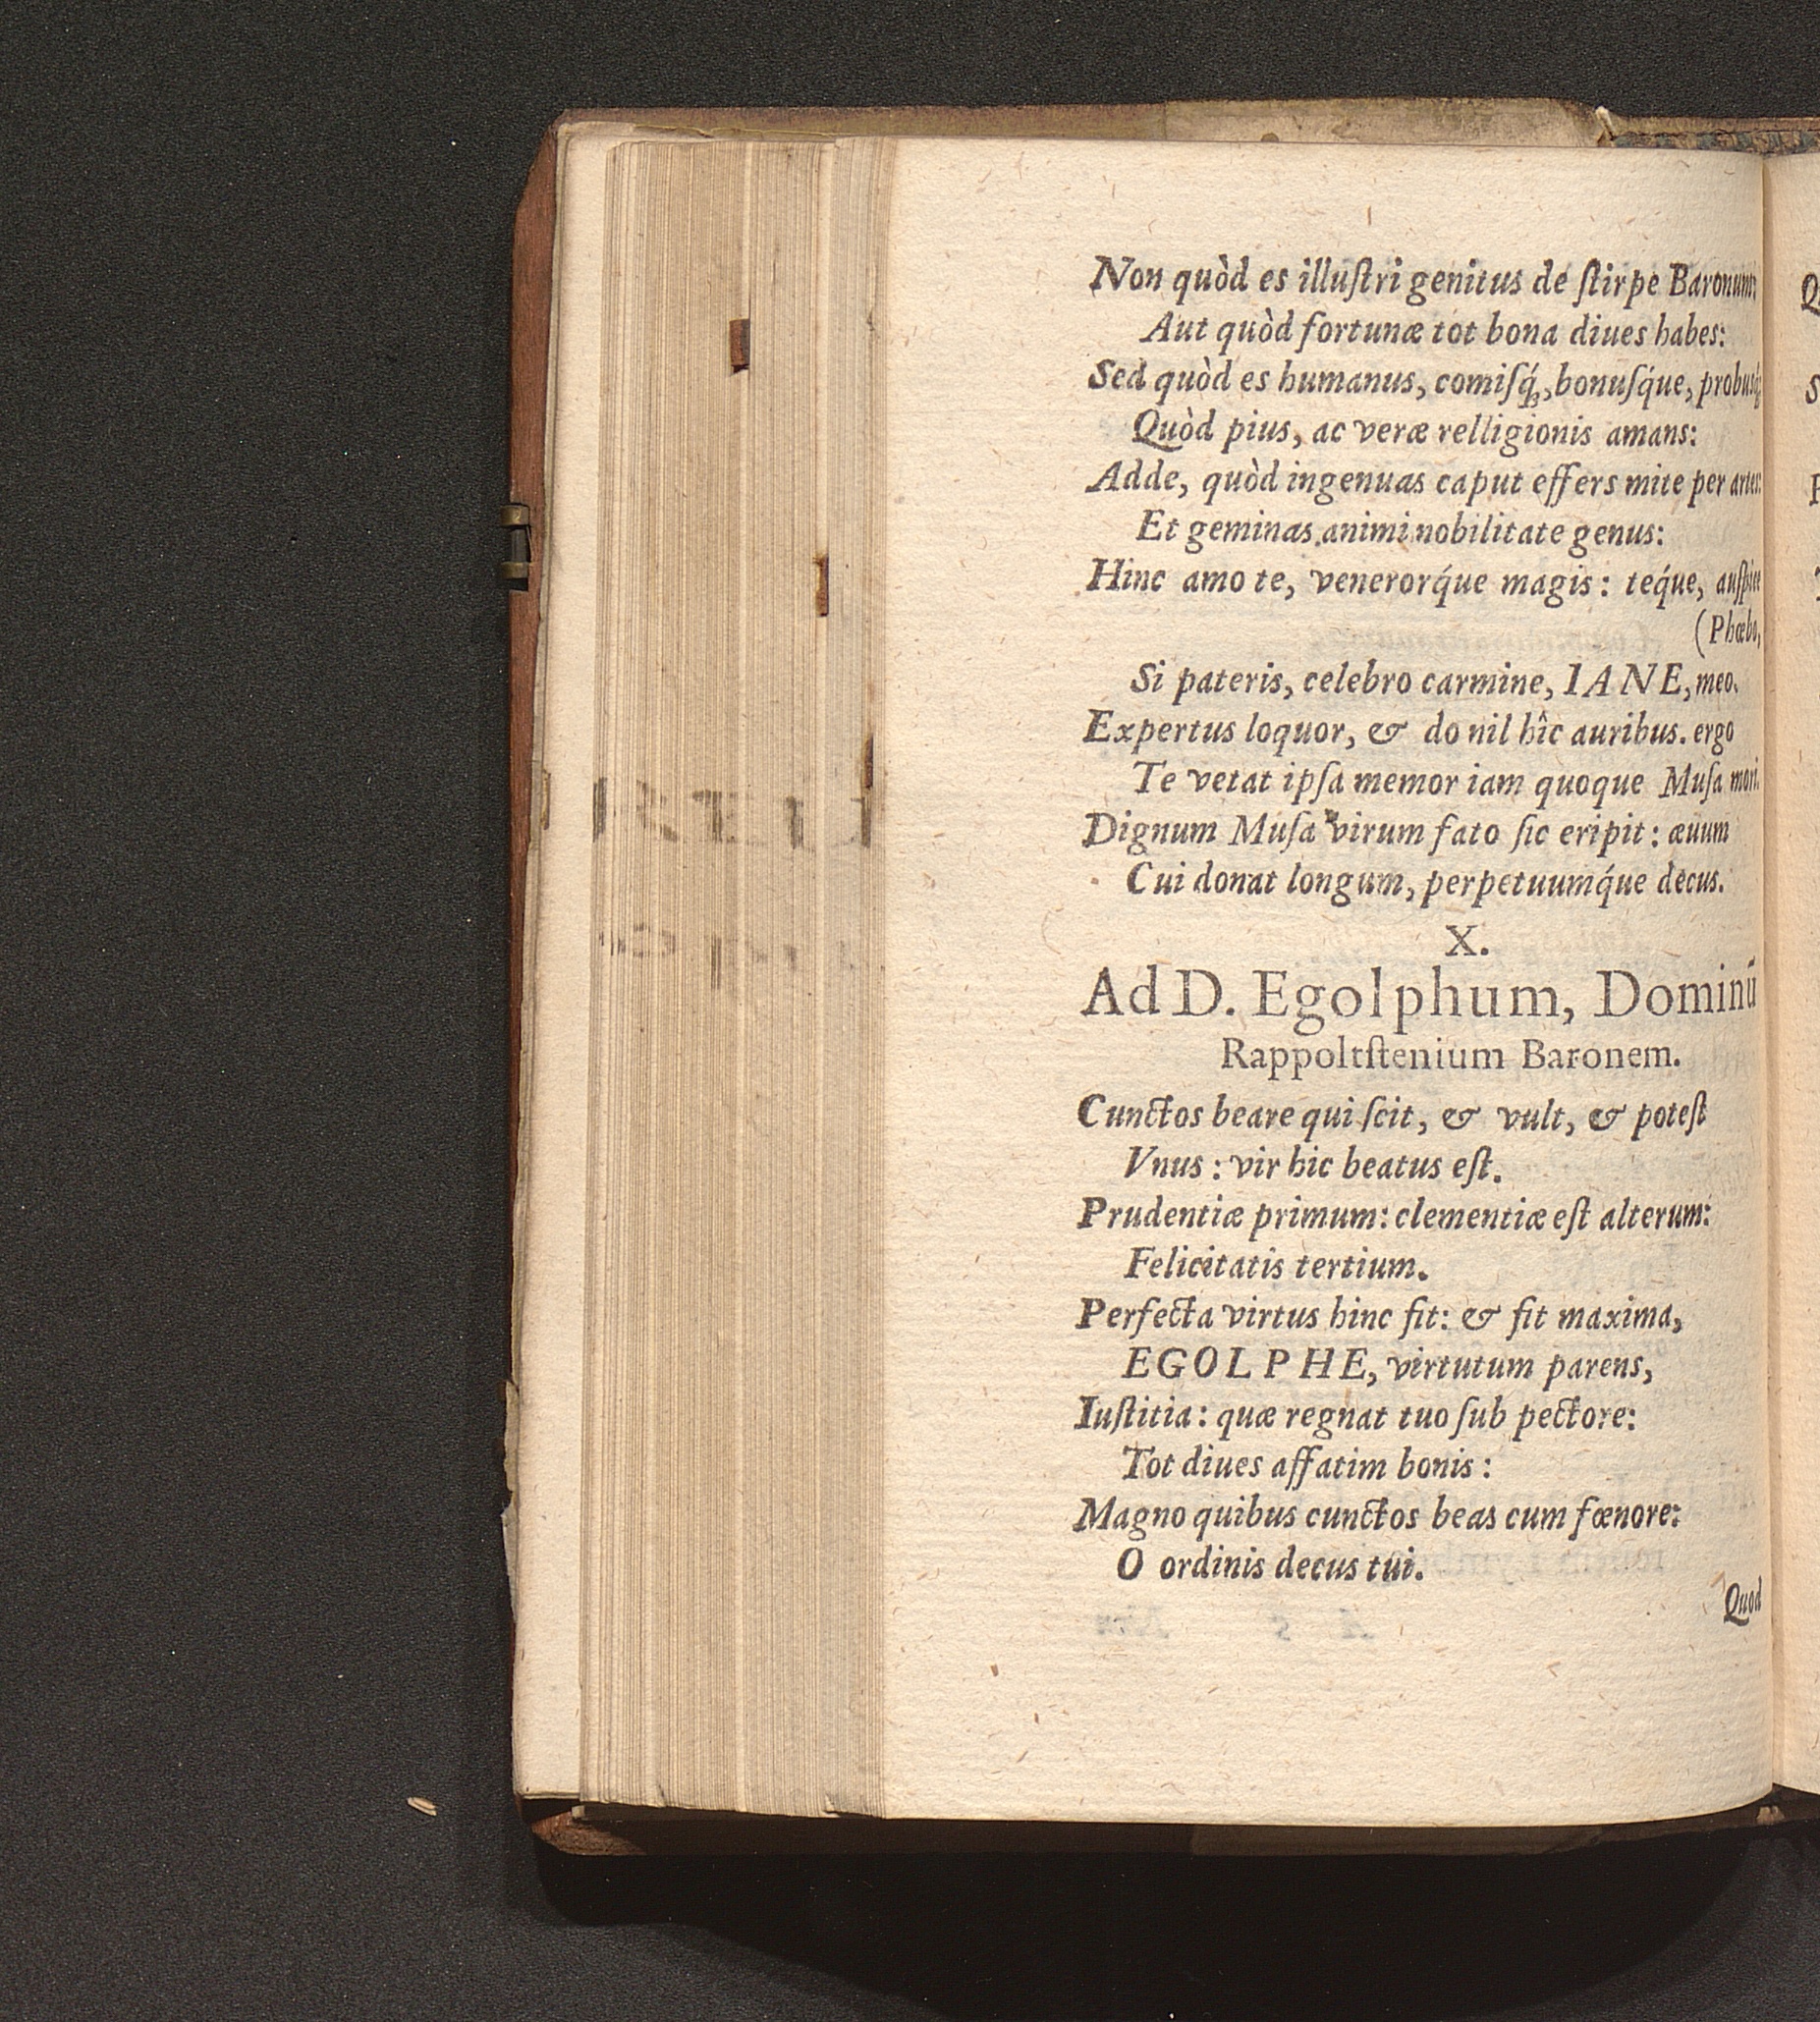 Non quòd es illuſtri genitus de ſtirpe Baronum:
Aut quòd fortunæ tot bona diues habes:
Sed quòd es humanus, comiſq́ꝫ, bonuſq́ue, probuſq́ꝫ
Quòd pius, ac veræ relligionis amans:
Adde, quòd ingenuas caput effers mite per artes:
Et geminas animi nobilitate genus:
Hinc amo te, venerorq́ue magis: teq́ue, auſpice
(Phœbo,
Si pateris, celebro carmine, IANE, meo.
Expertus loquor, & do nil hîc auribus. ergo
Te vetat ipſa memor iam quoque Muſa mori.
Dignum Muſa virum fato ſic eripit: æuum
Cui donat longum, perpetuumq́ue decus.
X.
Ad D. Egolphum, Dominū
Rappoltſtenium Baronem.
Cunctos beare qui ſcit, & vult, & poteſt
Vnus: vir hic beatus eſt.
Prudentiæ primum: clementiæ eſt alterum:
Felicitatis tertium.
Perfecta virtus hinc fit: & fit maxima,
EGOLPHE, virtutum parens,
Iuſtitia: quæ regnat tuo ſub pectore:
Tot diues affatim bonis:
Magno quibus cunctos beas cum fœnore:
O ordinis decus tui.
Quod